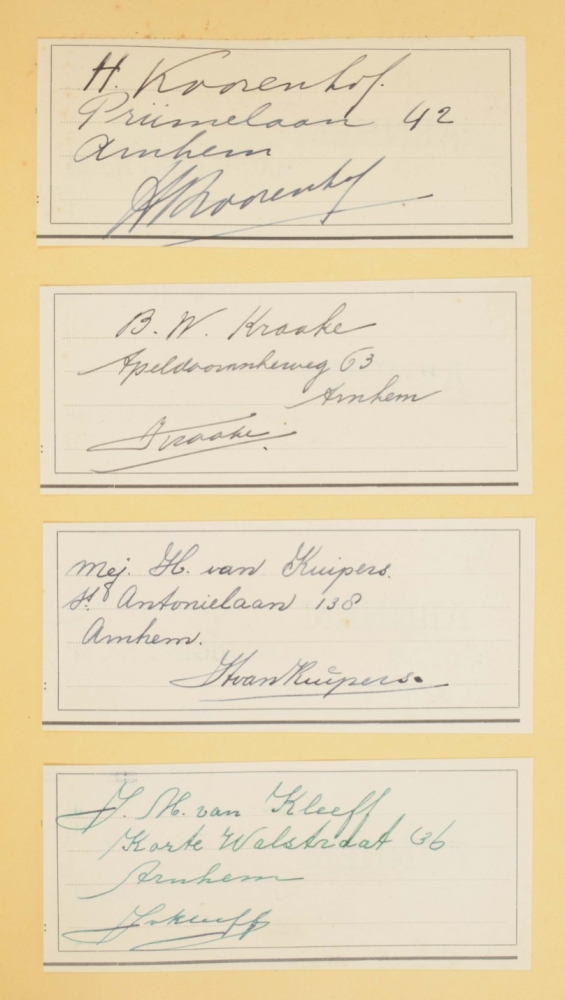 H. Koorenhof.
Priimelaan 42
Arnhem
HKoorenhof
B. W. Kraake
Apeldoornscheweg 63
Arnhem
Kraake.
Mej. H. van Kuipers.
St Antonielaan 138
Arnhem.
HvanKuipers.
J. M. van Kleeff
Korte Walstraat 36
Arnhem